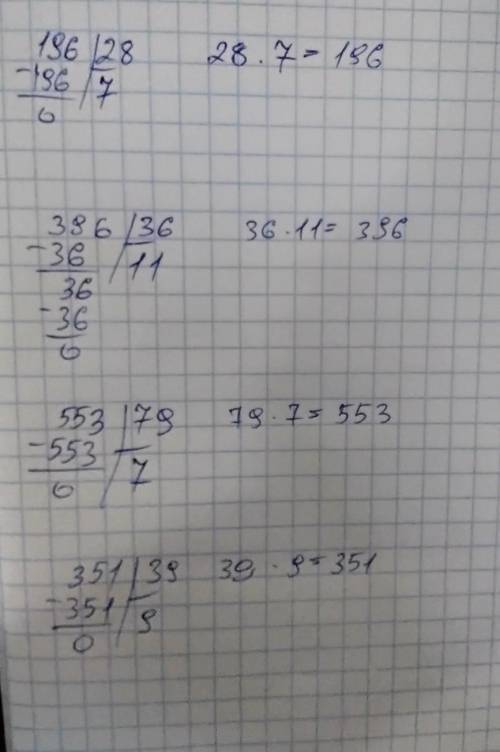 196 | 28 28 · 7 = 196
-196 | 7
0
396 | 36 36 · 11 = 396
-36 | 11
36
-36
0
553 | 79 79 · 7 = 553
-553 | 7
0
351 | 39 39 · 9 = 351
-351 | 9
0